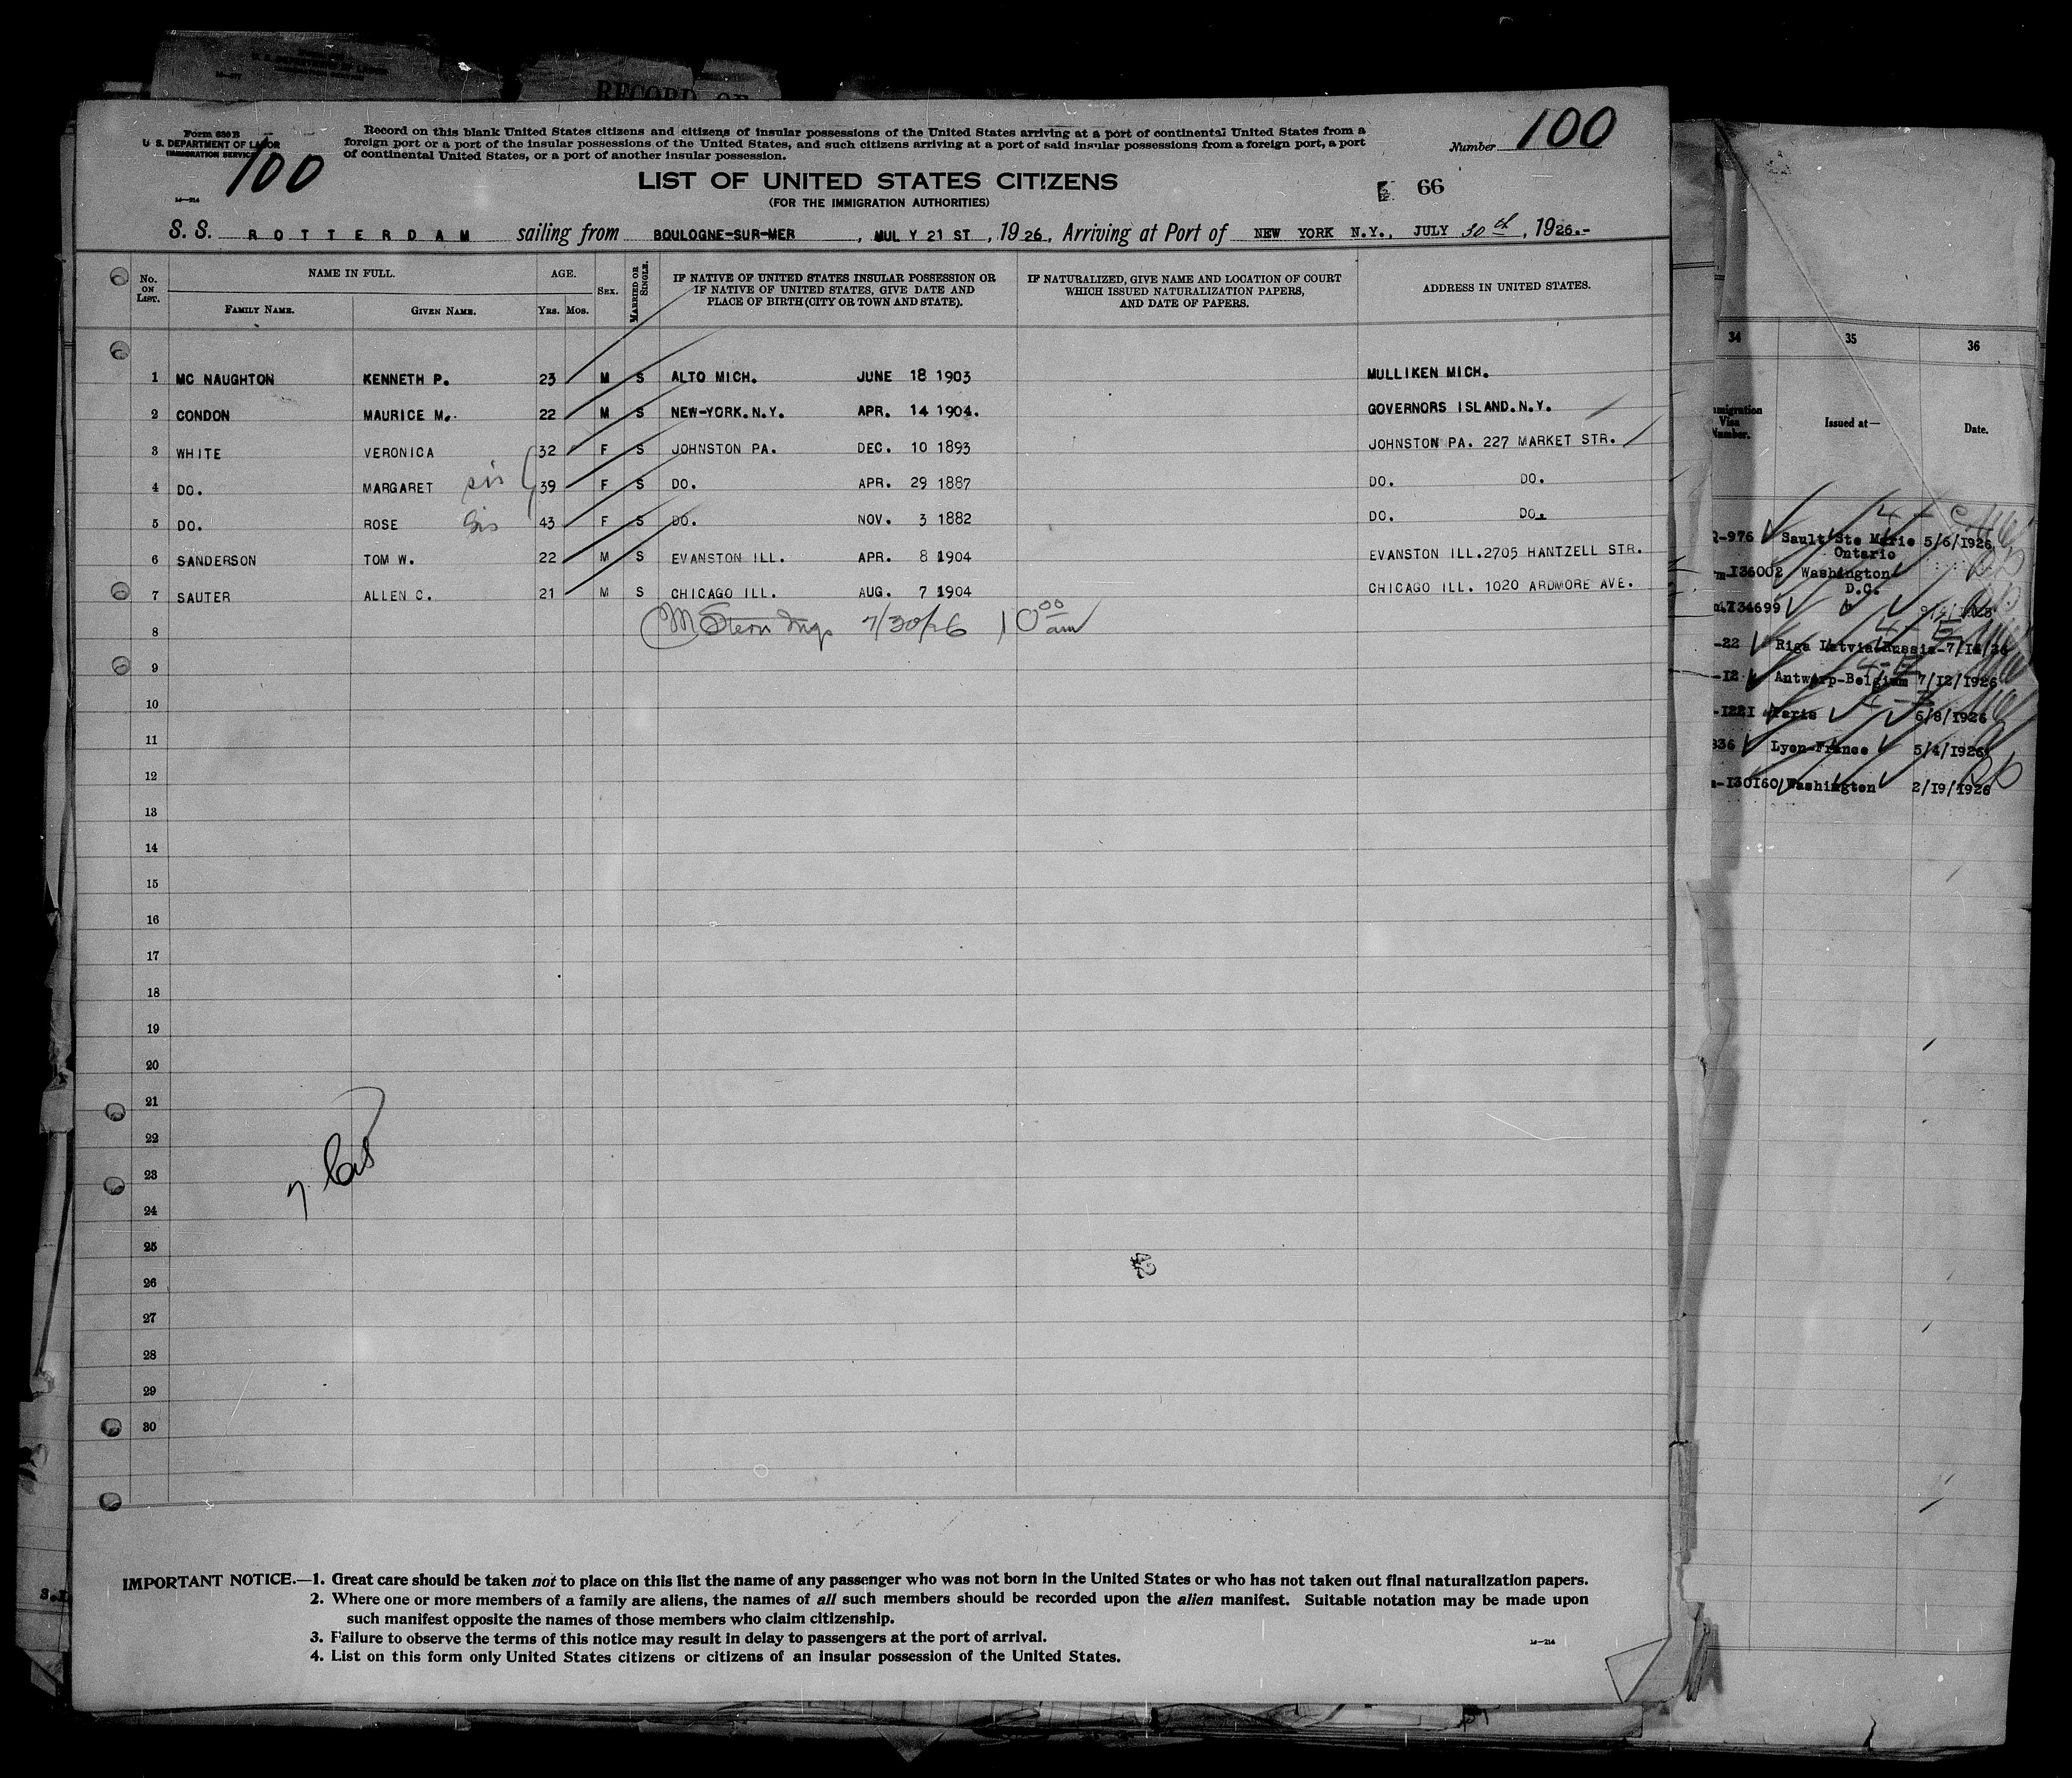 RECORD OF
Form 630 B
U. S. DEPARTMENT OF LABOR
IMMIGRATION SERVICE
100
14—214
Record on this blank United States citizens and citizens of insular possessions of the United States arriving at a port of continental United States from a
foreign port or a port of the insular possessions of the United States, and such citizens arriving at a port of said insular possessions from a foreign port, a port
of continental United States, or a port of another insular possession.
Number 100
LIST OF UNITED STATES CITIZENS
(FOR THE IMMIGRATION AUTHORITIES)
66
S. S. ROTTERDAM sailing from BOULOGNE-SUR-MER, MUL Y 21 ST, 1926, Arriving at Port of NEW YORK N.Y., JULY 30th, 1926.-
No. ON LIST.
NAME IN FULL.
FAMILY NAME. GIVEN NAME.
AGE.
Yrs. Mos.
SEX.
MARRIED OR SINGLE.
IF NATIVE OF UNITED STATES INSULAR POSSESSION OR
IF NATIVE OF UNITED STATES, GIVE DATE AND
PLACE OF BIRTH (CITY OR TOWN AND STATE).
IF NATURALIZED, GIVE NAME AND LOCATION OF COURT
WHICH ISSUED NATURALIZATION PAPERS,
AND DATE OF PAPERS.
ADDRESS IN UNITED STATES.
1 MC NAUGHTON KENNETH P. 23 M S ALTO MICH. JUNE 18 1903 MULLIKEN MICH.
2 CONDON MAURICE M. 22 M S NEW-YORK.N.Y. APR. 14 1904. GOVERNORS ISLAND.N.Y.
3 WHITE VERONICA 32 F S JOHNSTON PA. DEC. 10 1893 JOHNSTON PA. 227 MARKET STR.
4 DO. MARGARET sis 39 F S DO. APR. 29 1887 DO. DO.
5 DO. ROSE sis 43 F S DO. NOV. 3 1882 DO. DO.
6 SANDERSON TOM W. 22 M S EVANSTON ILL. APR. 8 1904 EVANSTON ILL.2705 HANTZELL STR.
7 SAUTER ALLEN C. 21 M S CHICAGO ILL. AUG. 7 1904 CHICAGO ILL. 1020 ARDMORE AVE.
8 M Stern Insp 7/30/26 10 00 am
9
10
11
12
13
14
15
16
17
18
19
20
21
22
23
7
24
25
26
27
28
29
30
IMPORTANT NOTICE.—1. Great care should be taken not to place on this list the name of any passenger who was not born in the United States or who has not taken out final naturalization papers.
2. Where one or more members of a family are aliens, the names of all such members should be recorded upon the alien manifest. Suitable notation may be made upon
such manifest opposite the names of those members who claim citizenship.
3. Failure to observe the terms of this notice may result in delay to passengers at the port of arrival.
4. List on this form only United States citizens or citizens of an insular possession of the United States.
14—214
34 35 36
Visa
Issued at—
Date.
-976 Sault Ste Marie 5/6/1926
Ontario
136002 Washington
D.C.
134699
-22 Riga Latvia-Russia-7/
-12 Antwerp-Belgium 7/12/1926
-1221 Paris 6/8/1926
836 Lyon-France 5/4/1926
-130160 Washington 2/19/1926